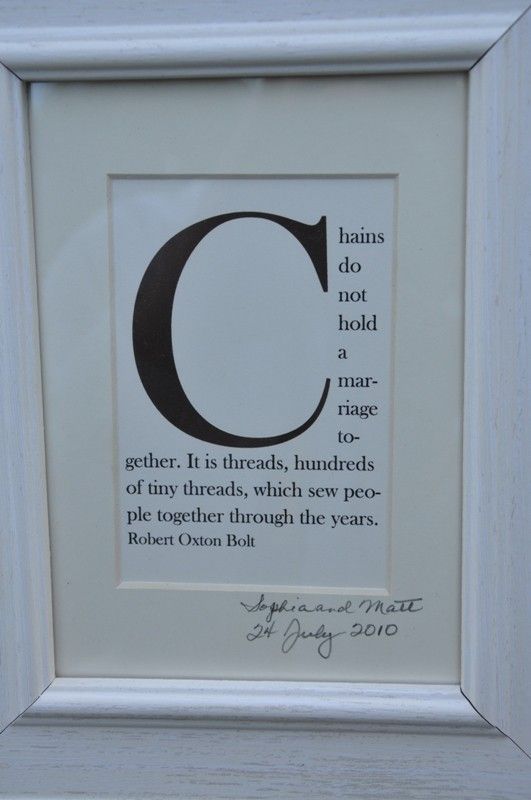 Chains
do
not
hold
a
mar-
riage
to-
gether. It is threads, hundreds
of tiny threads, which sew peo-
ple together through the years.
Robert Oxton Bolt
Sophia and Matt
24 July 2010